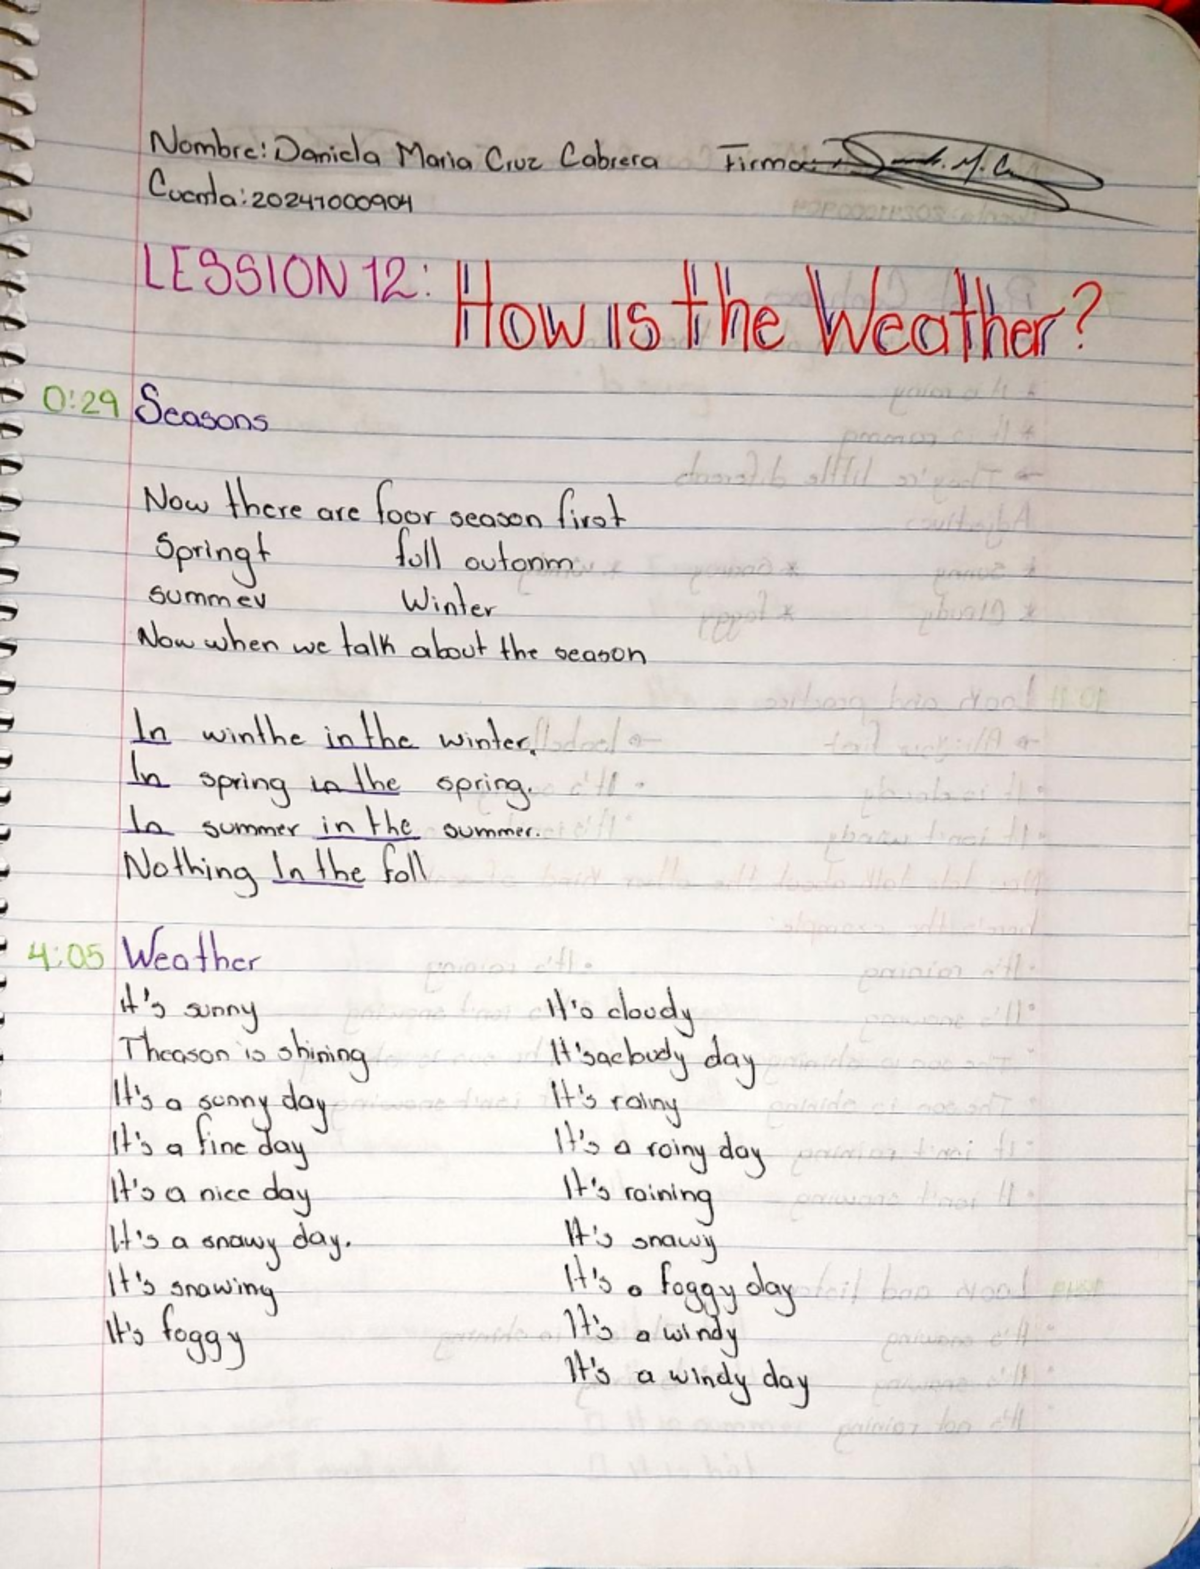 Nombre: Daniela Maria Cruz Cabrera Firma: D M. C
Cuenta: 20241000904
LESSION 12: How is the Weather?
0:29 Seasons
Now there are foor season first
Springt foll outonm
summer Winter
Now when we talk about the season
In winthe in the winter.
In spring in the spring.
In summer in the summer.
Nothing In the foll
4:05 Weather
It's sunny It's cloudy
Theason is shining It's acbudy day
It's a sonny day It's rainy
It's a fine day It's a roiny day
It's a nice day It's roining
It's a snawy day. It's snawy
It's snawing It's a foggy day
It's foggy It's a windy
It's a windy day